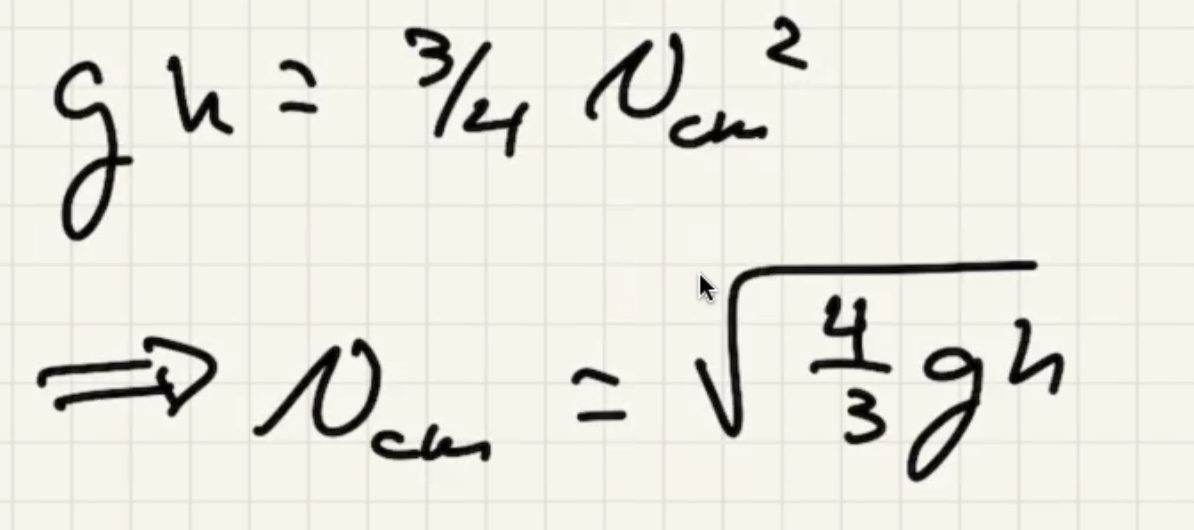 g h = 3/4 v_cm^2
⇒ v_cm = √(4/3 g h)